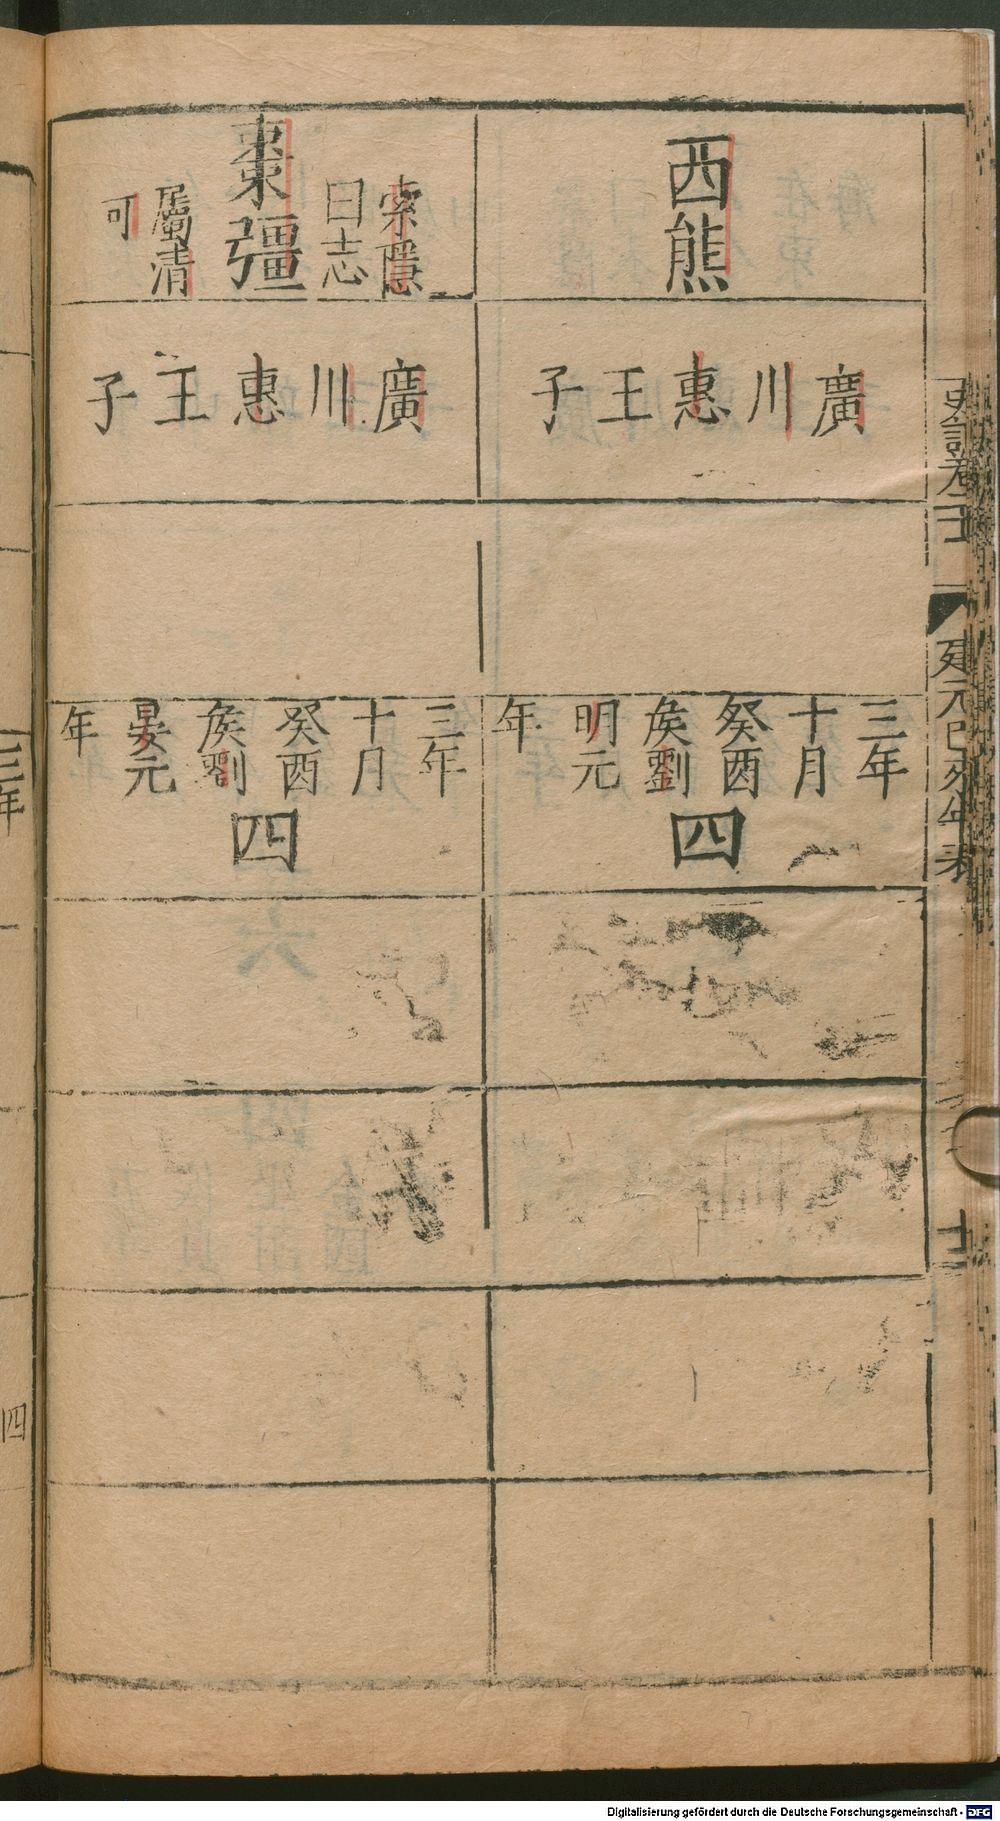 史記卷
建元已來年表
西熊
廣川惠王子
三年
十月
癸酉
矦劉
明元
年
四
索隱
曰志
棗彊
屬清
可
廣川惠王子
三年
十月
癸酉
矦劉
晏元
年
四
四
Digitalisierung gefördert durch die Deutsche Forschungsgemeinschaft - DFG